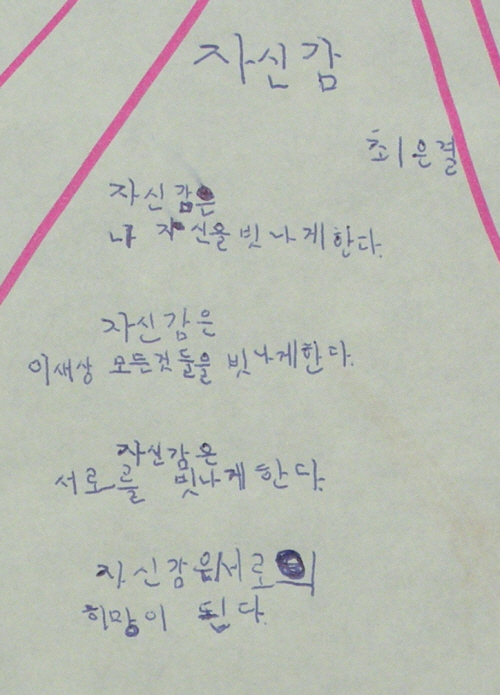 자신감
최은결
자신감은
나 자신을 빗나게한다.
자신감은
이새상 모든것들을 빗나게한다.
자신감은
서로를 빗나게 한다.
자신감은서로의
히망이 된다.